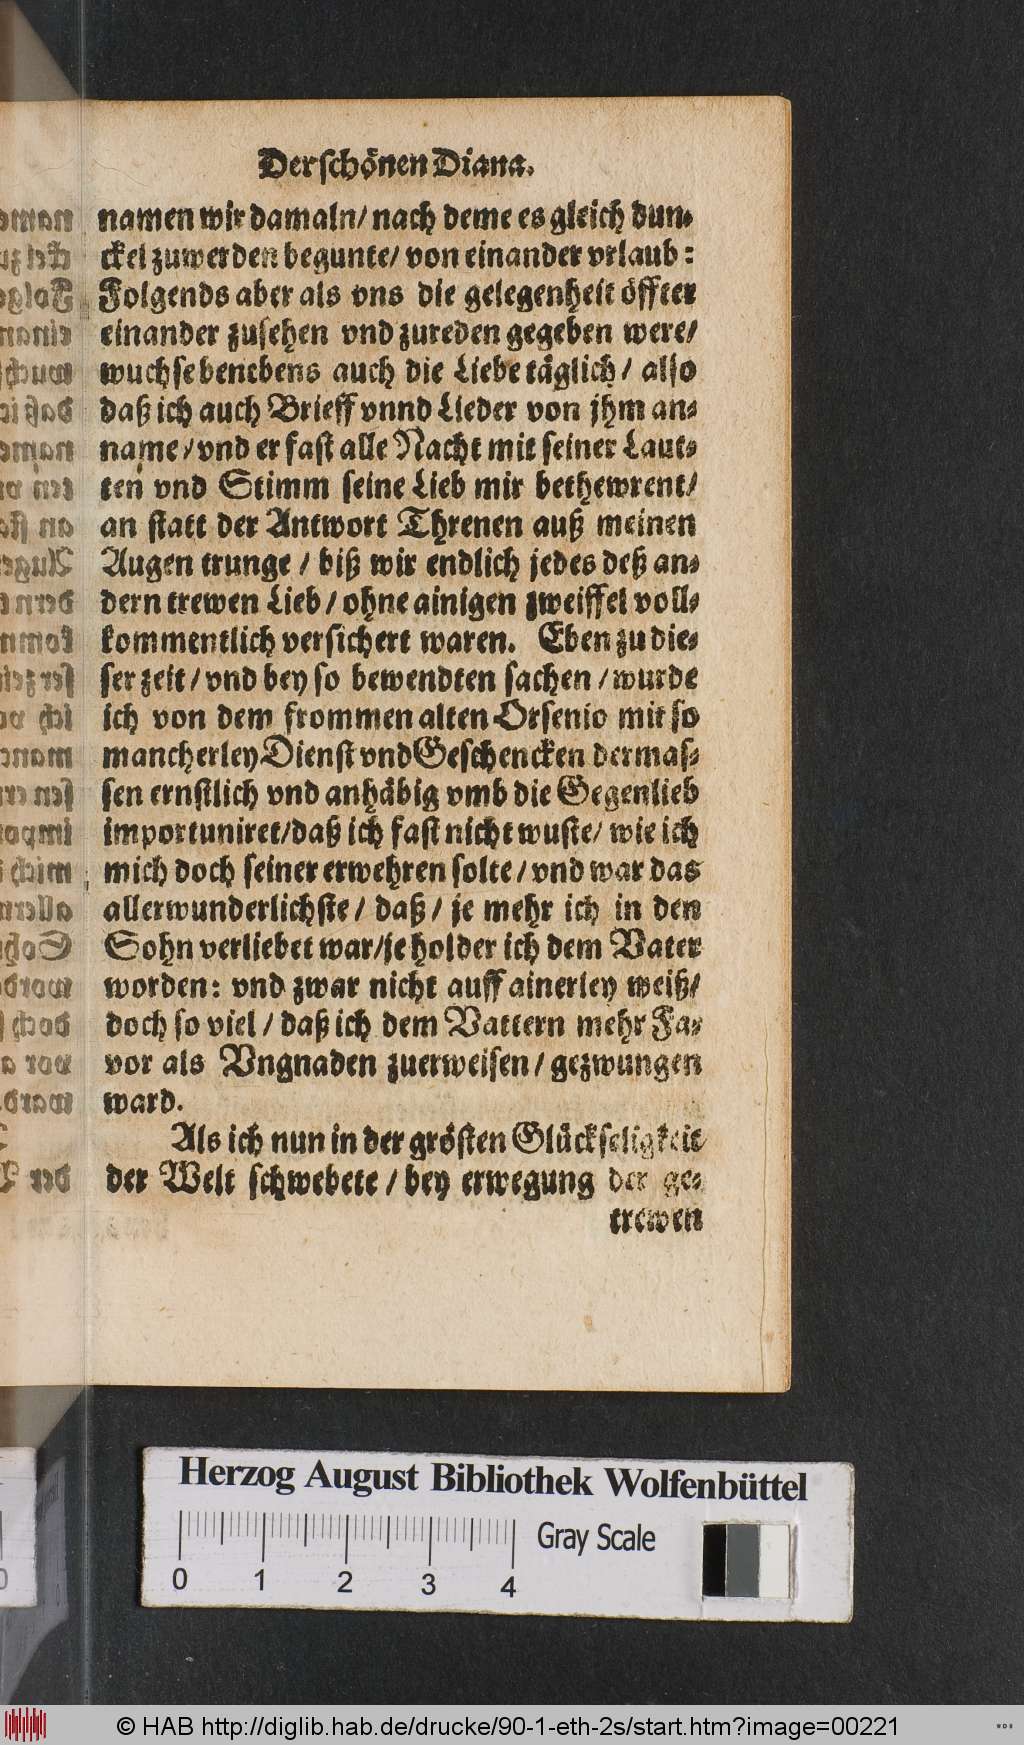 Der schönen Diana.
namen wir damaln/ nach deme es gleich dun-
ckel zuwerden begunte/ von einander vrlaub:
Folgends aber als vns die gelegenheit öffter
einander zusehen vnd zureden gegeben were/
wuchse benebens auch die Liebe täglich/ also
daß ich auch Brieff vnnd Lieder von jhm an-
name/ vnd er fast alle Nacht mit seiner Laut-
ten vnd Stimm seine Lieb mir bethewrent/
an statt der Antwort Threnen auß meinen
Augen trunge / biß wir endlich jedes deß an-
dern trewen Lieb / ohne ainigen zweiffel voll-
kommentlich versichert waren. Eben zu die-
ser zeit / vnd bey so bewendten sachen / wurde
ich von dem frommen alten Orsenio mit so
mancherley Dienst vnd Geschencken dermas-
sen ernstlich vnd anhäbig vmb die Gegenlieb
importuniret/ daß ich fast nicht wuste/ wie ich
mich doch seiner erwehren solte / vnd war das
allerwunderlichste / daß / je mehr ich in den
Sohn verliebet war/ je holder ich dem Vater
worden: vnd zwar nicht auff ainerley weiß/
doch so viel / daß ich dem Vattern mehr Fa-
vor als Vngnaden zuerweisen / gezwungen
ward.
Als ich nun in der grösten Glückseligkeit
der Welt schwebete / bey erwegung der ge-
trewen
Herzog August Bibliothek Wolfenbüttel
Gray Scale
0 1 2 3 4
© HAB http://diglib.hab.de/drucke/90-1-eth-2s/start.htm?image=00221